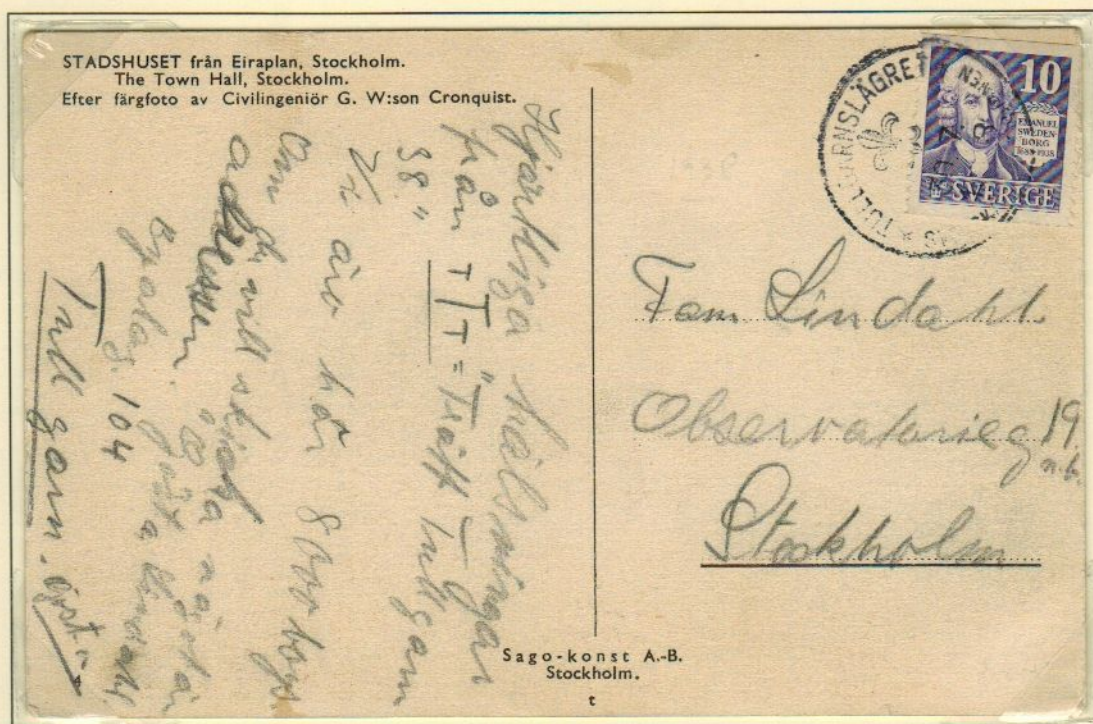 STADSHUSET från Eiraplan, Stockholm.
The Town Hall, Stockholm.
Efter färgfoto av Civilingeniör G. W:son Cronquist.
Hjärtliga hälsningar
från TTT = "Trött Tullgarn
38."
Vi äro här 800 boys.
Om ni vill skriva
adressen
104
Tullgarn.
TULLGARNSLÄGRET
10
EMANUEL
SWEDEN-
BORG
1688-1938
SVERIGE
Fam. Lindahl
Observatorieg 19
n.b.
Stockholm
Sago-konst A.-B.
Stockholm.
t